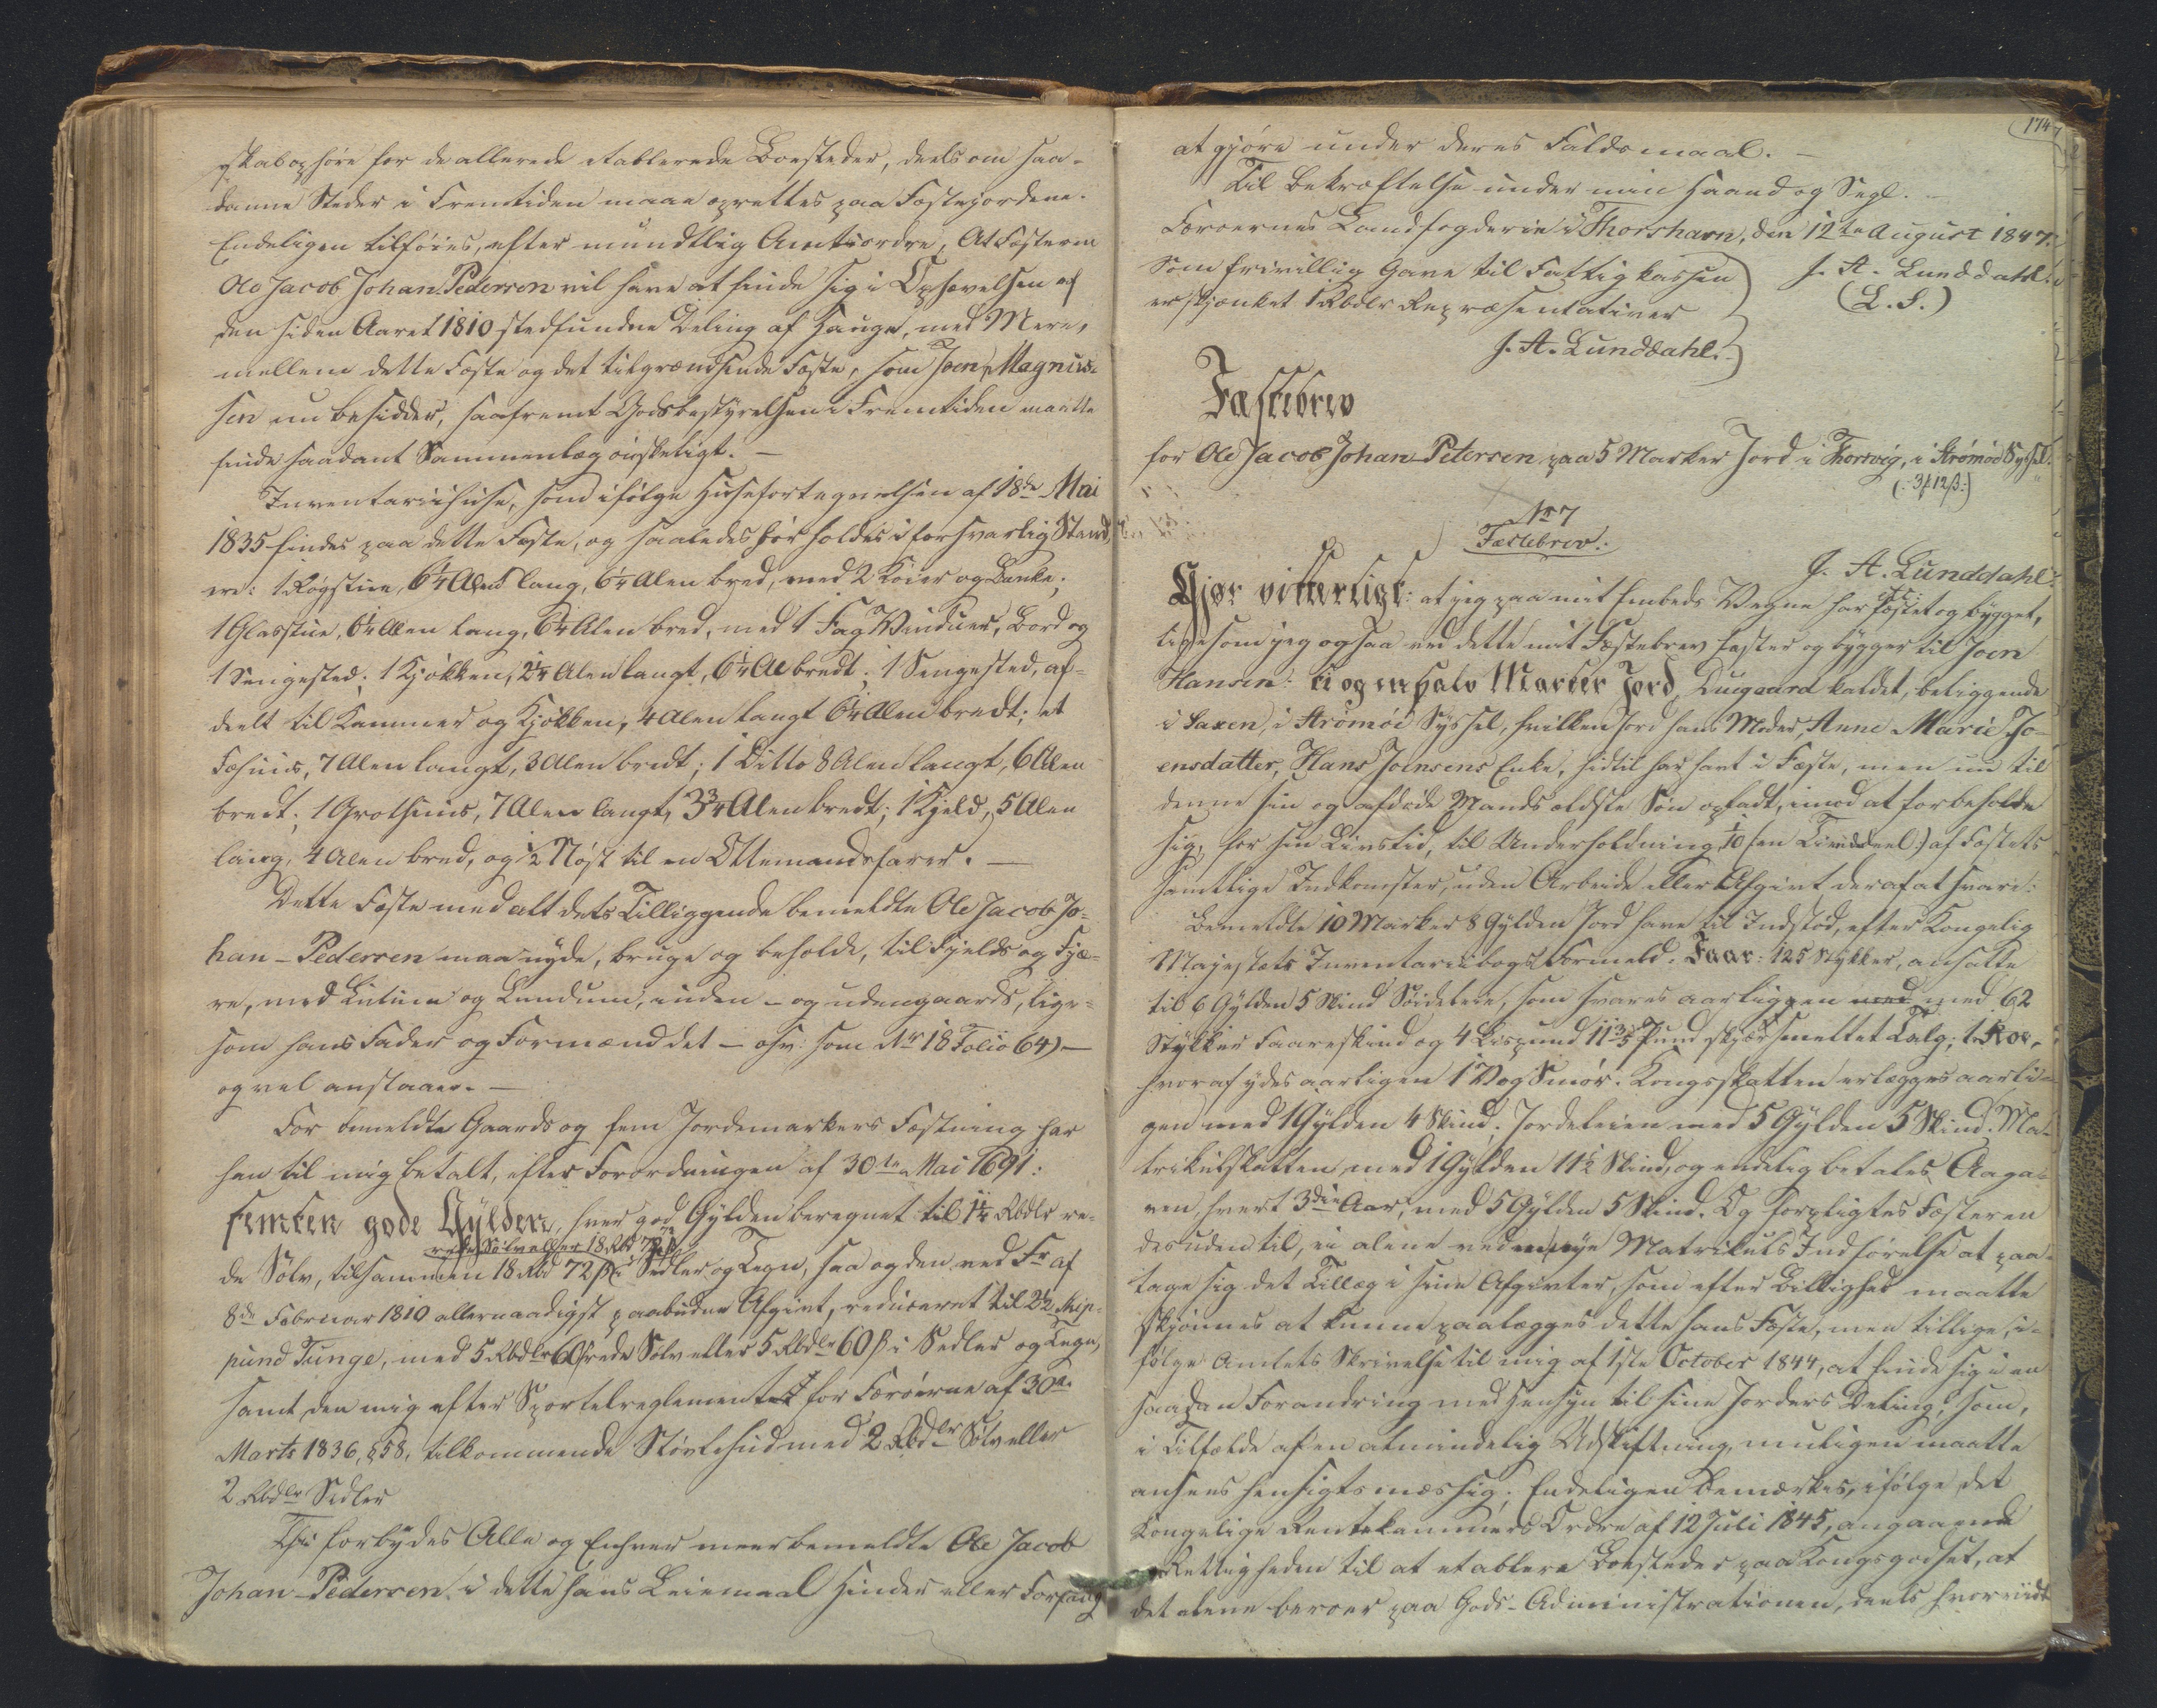 gskab ophøre for de allerede etablerede Boesteder, deels om saa-
danne Steder i Fremtiden maae oprettes paa Fæstejordene.
Endeligen tilføies, efter mundtlig Amtsordre, At Fæsteren
Ole Jacob Johan Pedersen vil have at finde sig i Ophævelsen af
den siden Aaret 1810 stedfundne Deling af Hauge, med Mere,
mellem dette Fæste og det tilgrændsende Fæste, som Joen Magnus-
sen nu besidder, saafremt Godsbestyrelsen i Fremtiden maatte
finde saadant Sammenlæg ønskeligt. —
Inventariihuse, som ifølge Huusefortegnelsen af 18de Mai
1835 findes paa dette Fæste, og saaledes bør holdes i forsvarlig Stand,
ere: 1 Røgstue, 6¼ Alen lang, 6¼ Alen bred, med 2 Køier og Bænke;
1 Glasstue, 6¼ Alen lang, 6¼ Alen bred, med 1 Fag Vinduer, Bord og
1 Sengested; 1 Kjøkken, 2¼ Alen langt, 6¼ Al bredt; 1 Sengested, af-
deelt til Kammer og Kjøkken, 4 Alen langt 6¼ Alen bredt; et
Fæhuus, 7 Alen langt, 3 Alen bredt; 1 Ditto 8 Alen langt, 6 Alen
bredt; 1 Grothuus, 7 Alen langt, 3¾ Alen bredt; 1 Kjeld, 5 Alen
lang, 4 Alen bred, og ½ Nøst til en Ottemandsfarer. —
Dette Fæste med alt dets Tilliggende bemeldte Ole Jacob Jo-
han-Pedersen maa nyde, bruge og beholde, til Fjelds og Fjæ-
re, med Lutum og Lundum, inden- og udengaards, lige-
som hans Fader og Formænd det — osv: som Nr 18 Folio 64) —
og vel anstaaer. —
For bemeldte Gaards og fem Jordemarkers Fæstning har
han til mig betalt, efter Forordningen af 30te Mai 1691:
femten gode Gylden, hver god Gylden beregnet til 1¼ Rbdlr re-
rede Sølv eller 18 Rbd 72 ß
de Sølv, tilsammen 18 Rbd 72 ß i Sedler og Tegn, saa og den ved Fr af
8de Februar 1810 allernaadigst paabudne Afgivt, reduceret til 2½ Skip-
pund Tunge, med 5 Rbdlr 60 ß rede Sølv eller 5 Rbdlr 60 ß i Sedler og Tegn,
samt den mig efter Sportelreglementet for Færøerne af 30te
Marts 1836, §58, tilkommende Støvlehud med 2 Rbdlr Sølv eller
2 Rbdlr Sedler
Thi forbydes Alle og Enhver meerbemeldte Ole Jacob
Johan-Pedersen i dette hans Leiemaal Hinder eller Forfang
174
at gjøre under deres Faldsmaal. —
Til Bekræftelse under min Haand og Segl. —
Færøernes Landfogderie i Thorshavn, den 12te August 1847.
Som frivillig Gave til Fattigkassen
er skjænket 1 Rbdlr Repræsentativer
J. A. Lunddahl.
J. A. Lunddahl.
(L.S.)
Fæstebrev
for Ole Jacob Johan-Petersen paa 5 Marker Jord i Thorsvig, i Strømøe Syssel.
(: 3 ƒ 12 ß :)
Nr 7
Fæstebrev:
J. A. Lunddahl
Gjør vitterligt: at jeg paa mit Embeds Vegne har fæstet og bygget,
ligesom jeg ogsaa ved dette mit Fæstebrev fæster og bygger til Joen
Hansen: ti og en halv Marker Jord, Dugaard kaldet, beliggende
i Saxen, i Strømøe Syssel, hvilken Jord hans Moder, Anne Marie Jo-
ensdatter, Hans Joensens Enke, hidtil har havt i Fæste, men nu til
denne sin og afdøde Mands ældste Søn opladt, imod at forbeholde
sig, for sin Livstid, til Underholdning 1/10 (en Tiendedeel:) af Fæstets
samtlige Indkomster, uden Arbeide eller Afgivt deraf at svare:
Bemeldte 10 Marker 8 Gylden Jord have til Indstød, efter Kongelig
Majestæts Inventariibogs Formeld: Faar: 125 Stykker, ansatte
til 6 Gylden 5 Skind Søideleie, som svares aarligen med 62
Stykker Faareskind og 4 Lispund 11 3/5 Pund skjær smeltet Talg; 1 Koe,
hvoraf ydes aarligen 1 Vog Smør. Kongsskatten erlægges aarli-
gen med 1 Gylden 4 Skind; Jordeleien med 5 Gylden 5 Skind. Ma-
trikulskatten med 1 Gylden 11½ Skind, og endelig betales Aaga-
ven, hvert 3die Aar, med 5 Gylden 5 Skind. Og forpligtes Fæsteren
desuden til, ei alene ved en nye Matrikuls Indførelse at paa-
tage sig det Tillæg i sine Afgivter, som efter Billighed maatte
skjønnes at kunne paalægges dette hans Fæste, men tillige, i-
følge Amtets Skrivelse til mig af 1ste October 1844, at finde sig i en
saadan Forandring med Hensyn til sine Jorders Deling, som,
i Tilfælde af en almindelig Udskiftning, muligen maatte
ansees hensigtsmæssig. Endeligen bemærkes, ifølge det
Kongelige Rentekammers Ordre af 12 Juli 1845, angaaende
Rettigheden til at etablere Boesteder paa Kongsgodset, at
det alene beroer paa Gods-Administrationen, deels hvorvidt